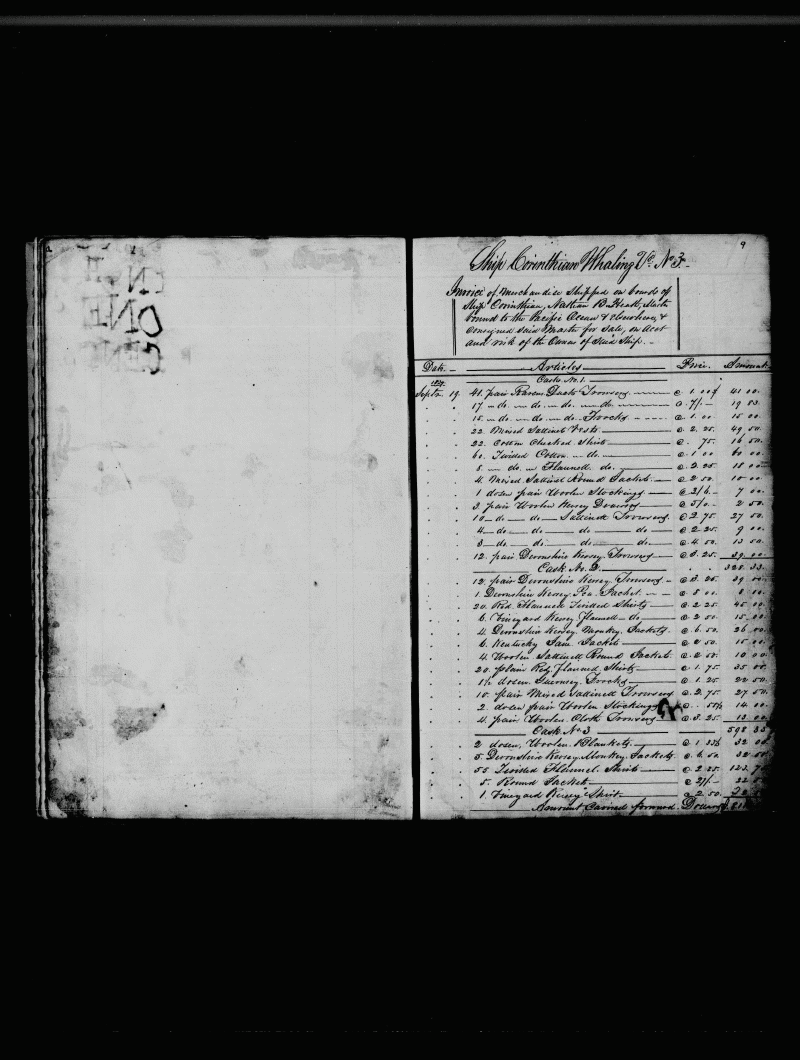 9
Ship Corinthian Whaling Vc. No 3.
Invoice of Merchandise Shipped on board of
Ship Corinthian, Nathan B. Heath, Master
bound to the Pacific Ocean & elsewhere, &
Consigned said Master for Sale, on acct
and risk of the Owners of said Ship.
Date. Articles Price. Amount.
Cask No. 1.
Septr. 19. 41 pair Raven Duck Trowsers @ 1.00 41 00
17 do. do. do. do. @ 7/- 19 83
15 do. do. do. Frocks @ 1 00 15 00
22 Mixed Sattinet Vests @ 2.25 49 50
22 Cotton Checked Shirts @ .75 16 50
60 Twilled Cotton do. @ 1 00 60 00
8 do. Flannell do. @ 2 25 18 00
4 Mixed Sattinet Round Jackets @ 2 50 10 00
1 dozen pair Woolen Stockings @ 7 00
3 pair Woolen Kersey Drawers @ 5/0 2 50
10 do. do. Sattinett Trowsers @ 2 75 27 50
4 do. do. do. do. @ 2 25 9 00
3 do. do. do. do. @ 4 50 13 50
12 pair Devonshire Kersey Trowsers @ 3.25 39 00
Cask No. 2. 328 33
12 pair Devonshire Kersey Trowsers @ 3.25 39 00
1 Devonshire Kersey Pea Jacket @ 8 00 8 00
20 Red Flannell Twilled Shirts @ 2 25 45 00
6 Vineyard Kersey Flannell do @ 2 50 15 00
4 Devonshire Kersey Monkey Jackets @ 6.50 26 00
6 Kentucky Jean Jackets @ 2 50 15 00
4 Woolen Sattinell Round Jackets @ 2 50 10 00
20 plain Red Flannel Shirts @ 1.75 35 00
1½ dozen Guernsey Frocks @ 1 25 22 50
10 pair Mixed Sattinell Trowsers @ 2.75 27 50
2 dozen pair Woolen Stockings @ 14 00
4 pair Woolen Cloth Trowsers @ 3.25 13 00
Cask No 3 598 33
2 dozen Woolen Blankets @ 1 33⅓ 32 00
5 Devonshire Kersey Monkey Jackets @ 6 50 32 50
55 Twilled Flannel Shirts @ 2 25
5 Round Jackets @
1 Vineyard Kersey Shirt @ 2 50
Amount Carried forward. Dollars